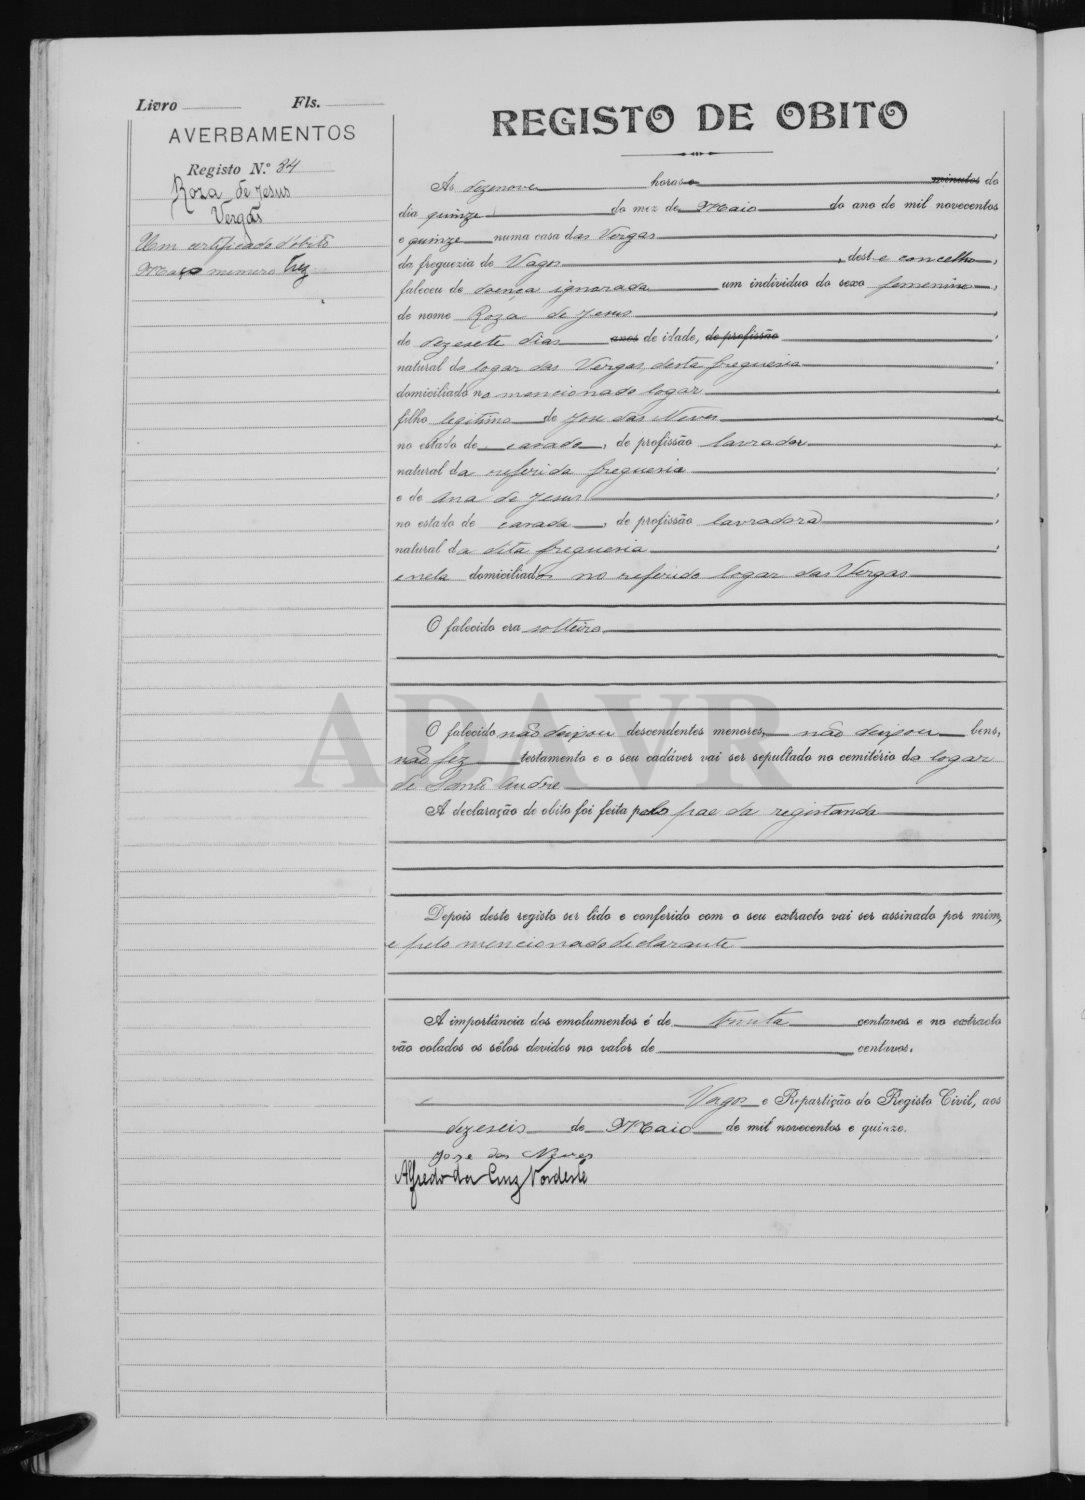 Livro Fls.
AVERBAMENTOS
Registo N.º 34
Roza de Jesus
Vergas
Um certificado d'obito
Maço numero trez
REGISTO DE OBITO
Ás dezenove horas e minutos do
dia quinze do mez de Maio do ano de mil novecentos
e quinze numa casa das Vergas,
da freguezia de Vagos, deste concelho,
faleceu de doença ignorada um individuo do sexo femenino,
de nome Roza de Jesus,
de dezesete dias anos de idade, de profissão,
natural do logar das Vergas, desta freguesia,
domiciliado no mencionado logar,
filho legitimo de José das Neves,
no estado de casado, de profissão lavrador,
natural da referida freguesia,
e de Ana de Jesus,
no estado de casada, de profissão lavradora,
natural da dita freguesia,
e nela domiciliados no referido logar das Vergas
O falecido era solteiro
ADAVR
O falecido não deixou descendentes menores, não deixou bens,
não fez testamento e o seu cadáver vai ser sepultado no cemitério do logar
de Santo André
A declaração de obito foi feita pelo pae da registanda
Depois deste registo ser lido e conferido com o seu extracto vai ser assinado por mim,
e pelo mencionado declarante
A importância dos emolumentos é de trinta centavos e no extracto
vão colados os sêlos devidos no valor de centavos.
Vagos e Repartição do Registo Civil, aos
dezeseis de Maio de mil novecentos e quinze.
José das Neves
Alfredo da Cruz Nordeste